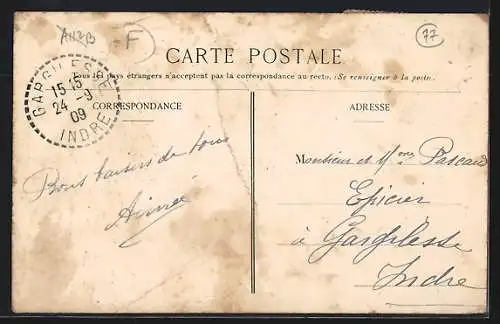 A113B
F
77
CARTE POSTALE
Tous les pays étrangers n'acceptent pas la correspondance au recto. (Se renseigner à la poste.)
GARGILESSE
15 15
24 -9
09
INDRE
CORRESPONDANCE
ADRESSE
Bons baisers de tous
Aimée
Monsieur et Mme Pascaud
Epicier
à Gargilesse
Indre